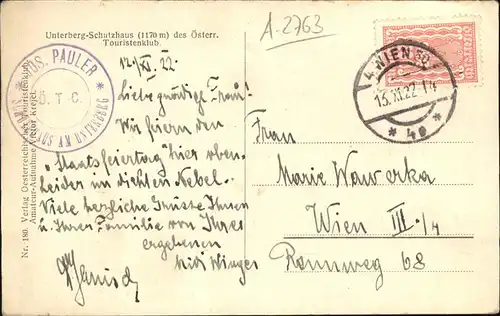 Unterberg-Schutzhaus (1170 m) des Österr.
Touristenklub.
A-2763
JOS. PAULER
Ö. T. C.
AM UNTERBERG
Nr. 180. Verlag Oesterreichischer Touristenklub
Amateur-Aufnahme Viktor Krejci.
12/XI. 22.
Liebe gnädige Frau!
Wir feiern den
"Staatsfeiertag" hier oben.
Leider im dichten Nebel.
Viele herzliche Grüsse Ihnen
u Ihrer Familie von Ihren
ergebenen
4 WIEN 50
13.XI.22
* 4e *
Frau
Marie Wawerka
Wien III./4
Rennweg 68